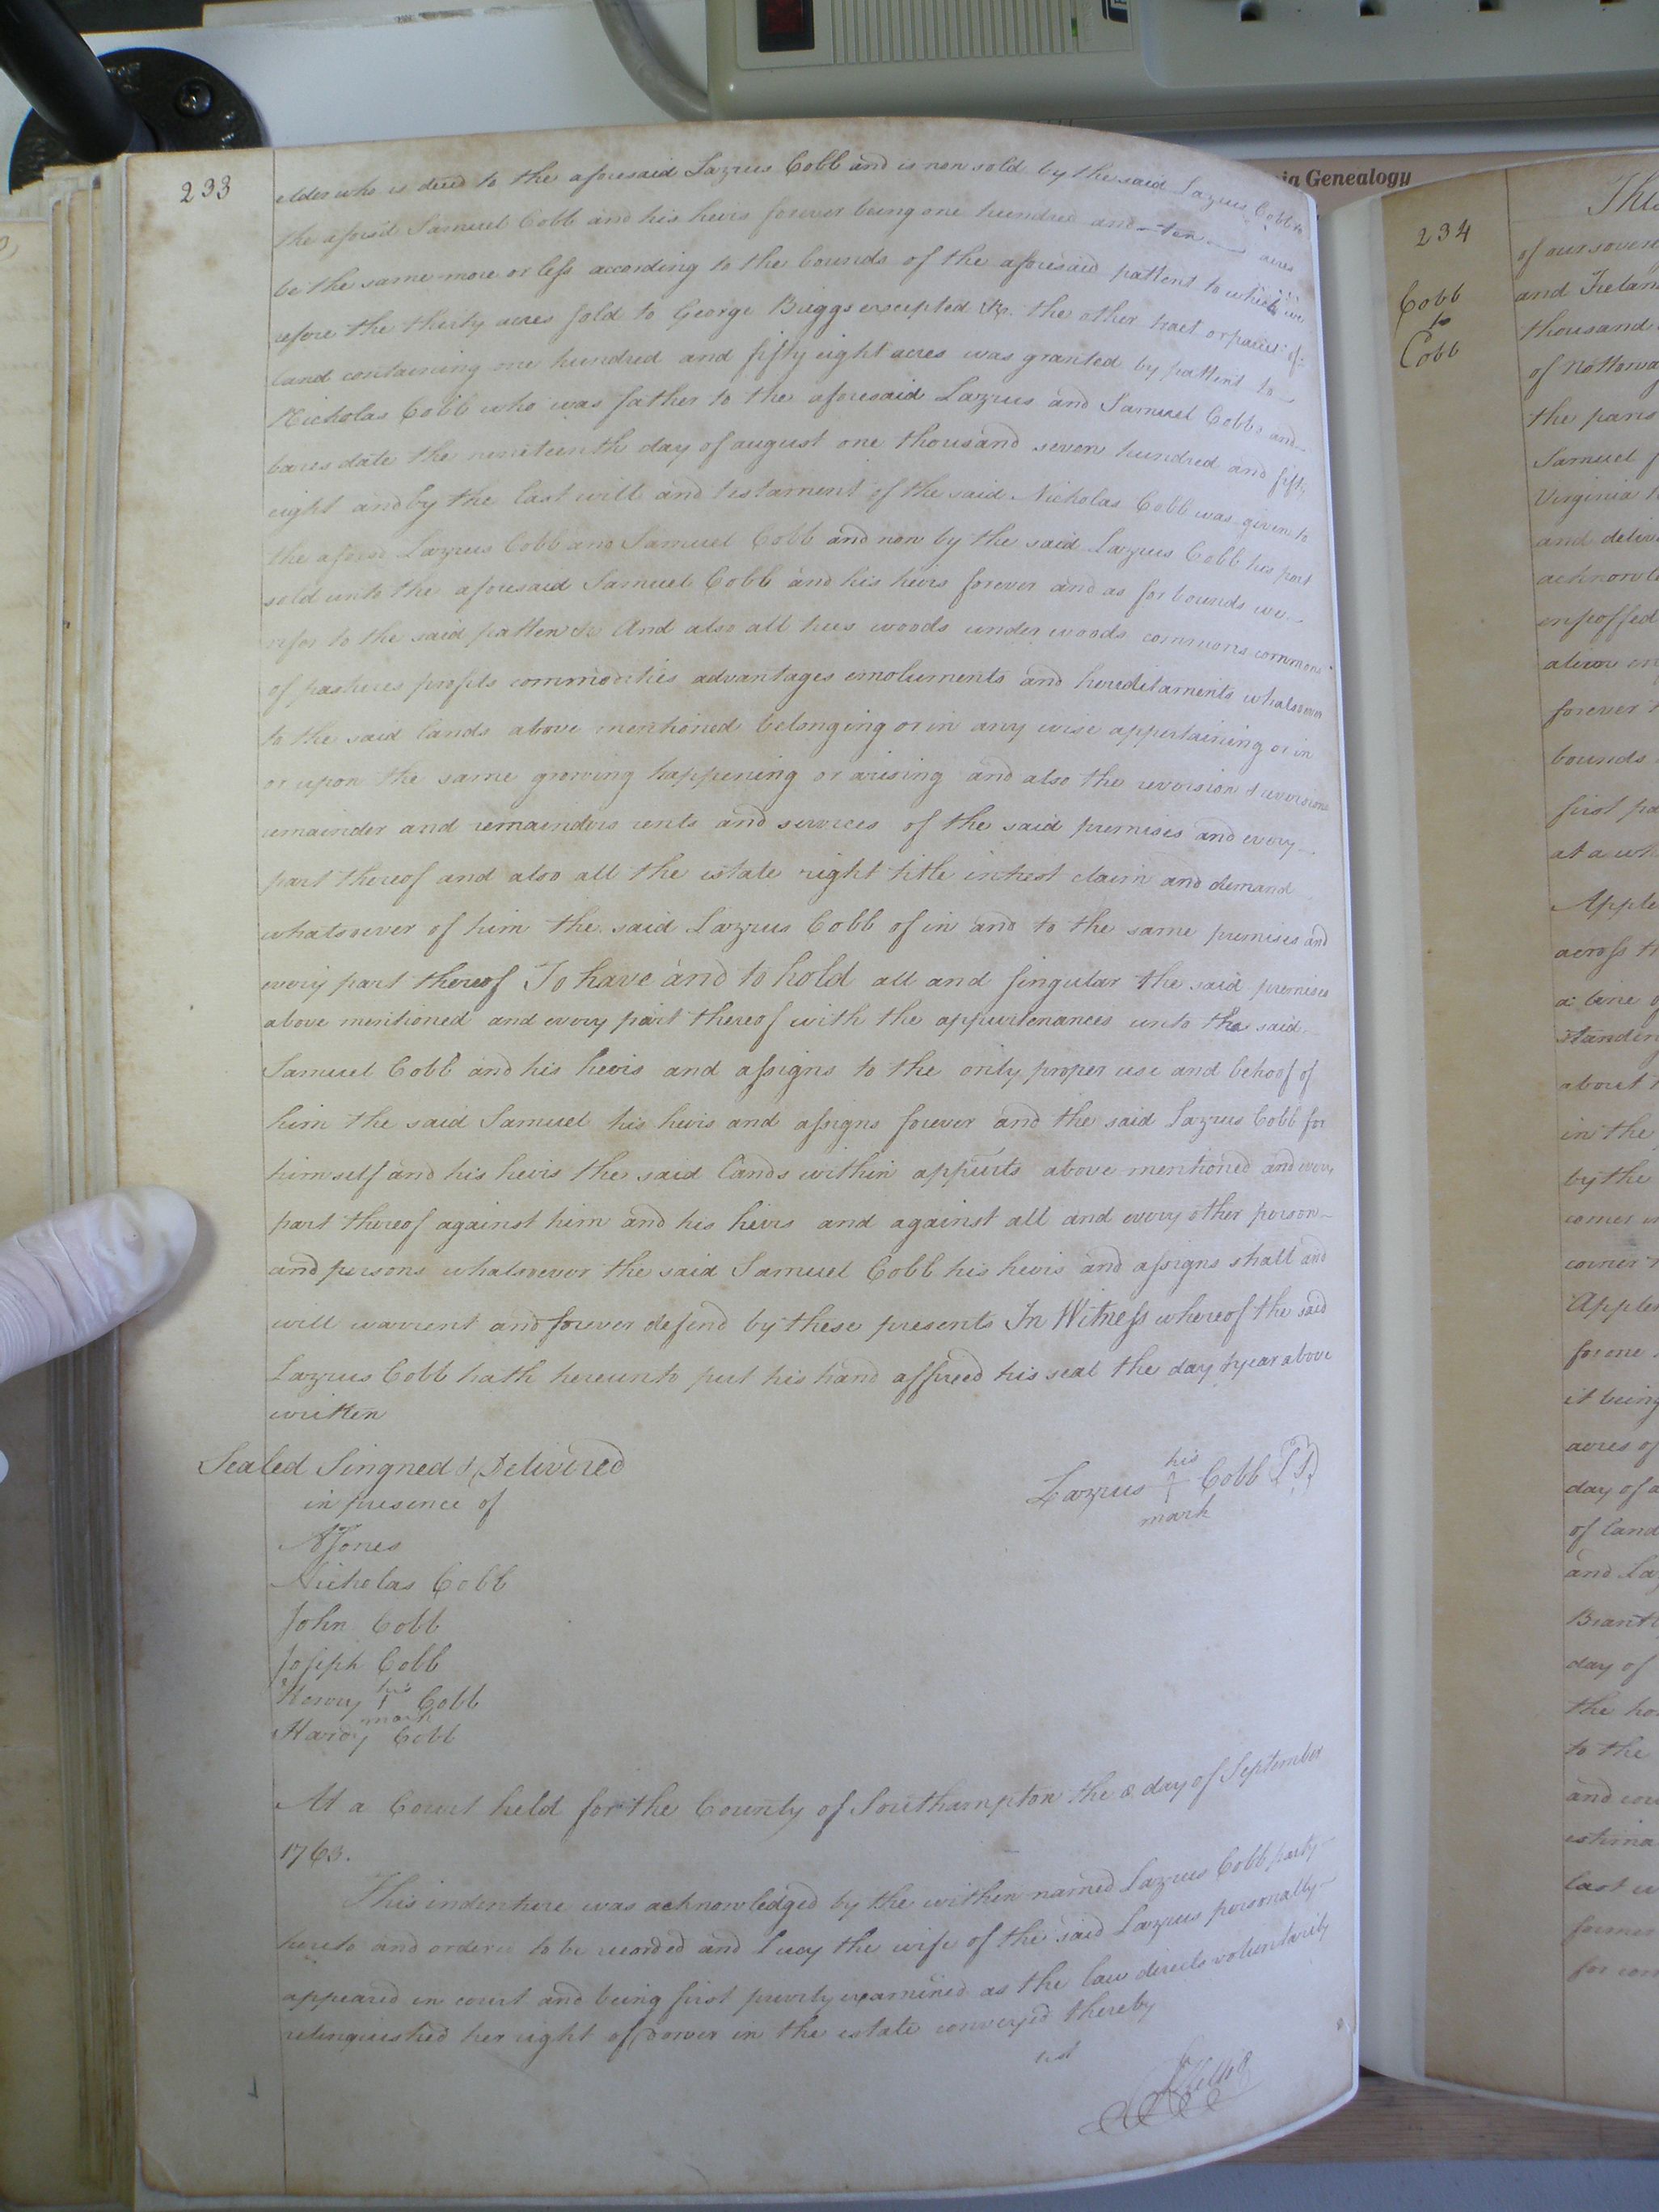 233
elder who is deed to the aforesaid Lazrus Cobb and is now sold by the said Lazrus Cobb to
the aforsd Samuel Cobb and his heirs forever being one hundred and ten acres
be the same more or less according to the bounds of the aforesaid pattent to which we
refore the thirty acres sold to George Briggs excepted &c. the other tract or parcel of
land containing one hundred and fifty eight acres was granted by pattent to
Nicholas Cobb who was father to the aforesaid Lazrus and Samuel Cobbs and
bares date the nineteenth day of august one thousand seven hundred and fifty
eight and by the last will and testament of the said Nicholas Cobb was given to
the aforsd Lazrus Cobb and Samuel Cobb and now by the said Lazrus Cobb his part
sold unto the aforesaid Samuel Cobb and his heirs forever and as for bounds we
refor to the said patten &c And also all trees woods under woods commons common
of pastures profits commodities advantages emoluments and hereditaments whatsoever
to the said lands above mentioned belonging or in any wise appertaining or in
or upon the same growing happening or arising and also the reversion & reversions
remainder and remainders rents and services of the said premises and every
part thereof and also all the estate right title intrest claim and demand
whatsoever of him the said Lazrus Cobb of in and to the same premises and
every part thereof To have and to hold all and singular the said premises
above mentioned and every part thereof with the appurtenances unto the said
Samuel Cobb and his heirs and assigns to the only proper use and behoof of
him the said Samuel his heirs and assigns forever and the said Lazrus Cobb for
himself and his heirs the said lands within appurts above mentioned and every
part thereof against him and his heirs and against all and every other person
and persons whatsoever the said Samuel Cobb his heirs and assigns shall and
will warrent and forever defend by these presents In Witness whereof the said
Lazrus Cobb hath hereunto put his hand affixed his seal the day & year above
written
Sealed Singned & Delivered
in presence of
Lazrus his mark Cobb (LS)
AJones
Nicholas Cobb
John Cobb
Joseph Cobb
Henry his mark Cobb
Hardy Cobb
At a Court held for the County of Southampton the 8 day of September
1763.
This indenture was acknowledged by the within named Lazrus Cobb party
hereto and ordered to be recorded and Lucy the wife of the said Lazrus personally
appeared in court and being first privily examined as the law directs voluntarily
relinquished her right of dower in the estate conveyed thereby
test
ia Genealogy
234
Cobb
to
Cobb
This
of our sover
and Irelan
thousand
of Nottoway
the paris
Samuel
Virginia
and deliv
acknowl
enfossed
alien
forever
bounds
first pa
at a wh
Apple
across th
a line o
standin
about
in the
by the
comes
corner
Apple
for one
it being
acres of
day of a
of land
and La
Brant
day of
the ho
to the
and cou
estima
last w
former
for con